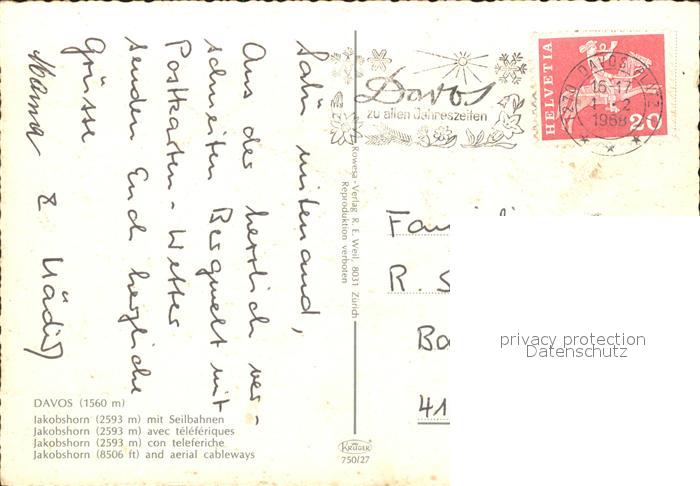 Salü mitenand,
Aus der herrlich ver-
schneiten Bergwelt mit
Postkarten-Wetter
senden Euch herzliche
Grüsse
&
DAVOS (1560 m)
Jakobshorn (2593 m) mit Seilbahnen
Jakobshorn (2593 m) avec téléfériques
Jakobshorn (2593 m) con teleferiche
Jakobshorn (8506 ft) and aerial cableways
Rowesa-Verlag R. E. Weil, 8031 Zürich
Reproduktion verboten
KRÜGER
750/27
Davos
zu allen Jahreszeiten
HELVETIA
20
7270 DAVOS PLATZ
16-17
1968
Fam
R. S
Ba
41
privacy protection
Datenschutz